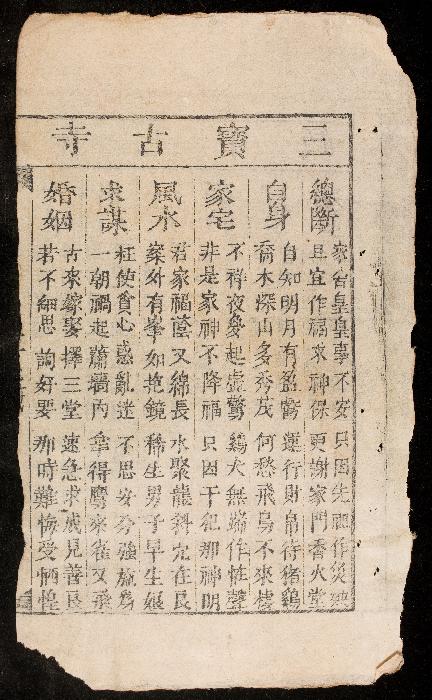 三寶古寺
總斷
家舍皇皇事不安 只因先祖作災殃
且宜作福求神保 更謝家門香火堂
自身
自知明月有盈虧 運行財帛待猪鷄
喬木深山多秀茂 何愁飛鳥不來棲
家宅
不祥夜夢起虛驚 鷄犬無端作怪聲
非是家神不降福 只因干犯那神明
風水
君家福蔭又綿長 水聚龍 穴在艮
案外有峯如抱鏡 稀生男子早生娘
求謀
枉使貪心惑亂迷 不思安分強施為
一朝禍起蕭墻內 拿得鷹來雀又飛
婚姻
古來嫁娶擇三堂 速急求成見善良
若不細思詢好要 那時難悔受恓惶